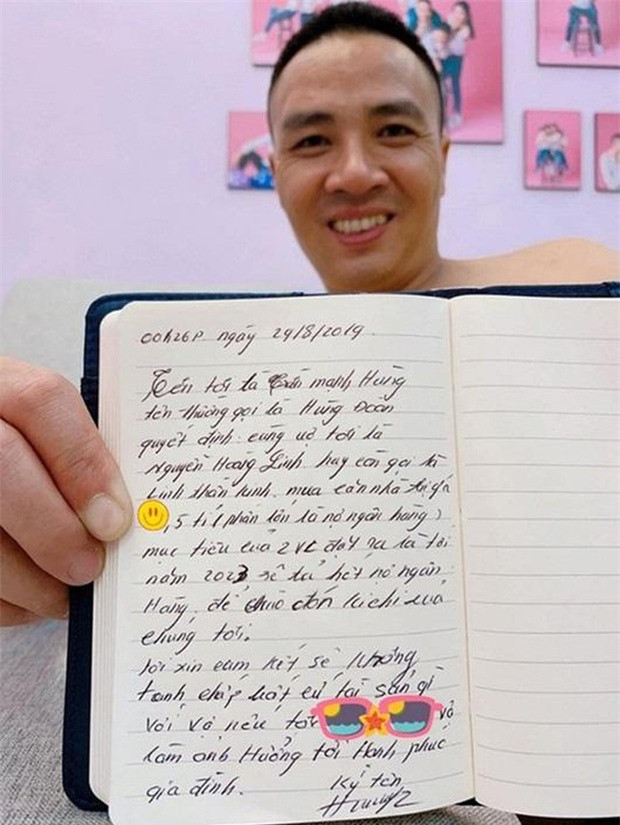 00h26p ngày 29/8/2019.
Tên tôi là Trần mạnh Hùng
tên thường gọi là Hùng Đoàn
quyết định: cùng vợ tôi là
Nguyễn Hoàng Linh hay còn gọi là
Linh mua căn nhà giá
,5 tỉ (phần lớn là nợ ngân hàng)
mục tiêu của 2VC đặt ra là tới
năm 2023 sẽ trả hết nợ ngân
Hàng, để chào đón của
chúng tôi.
tôi xin cam kết sẽ không
tranh chấp bất cứ tài sản gì
với vợ nếu tôi
làm ảnh Hưởng tới Hạnh phúc
gia đình. Ký tên